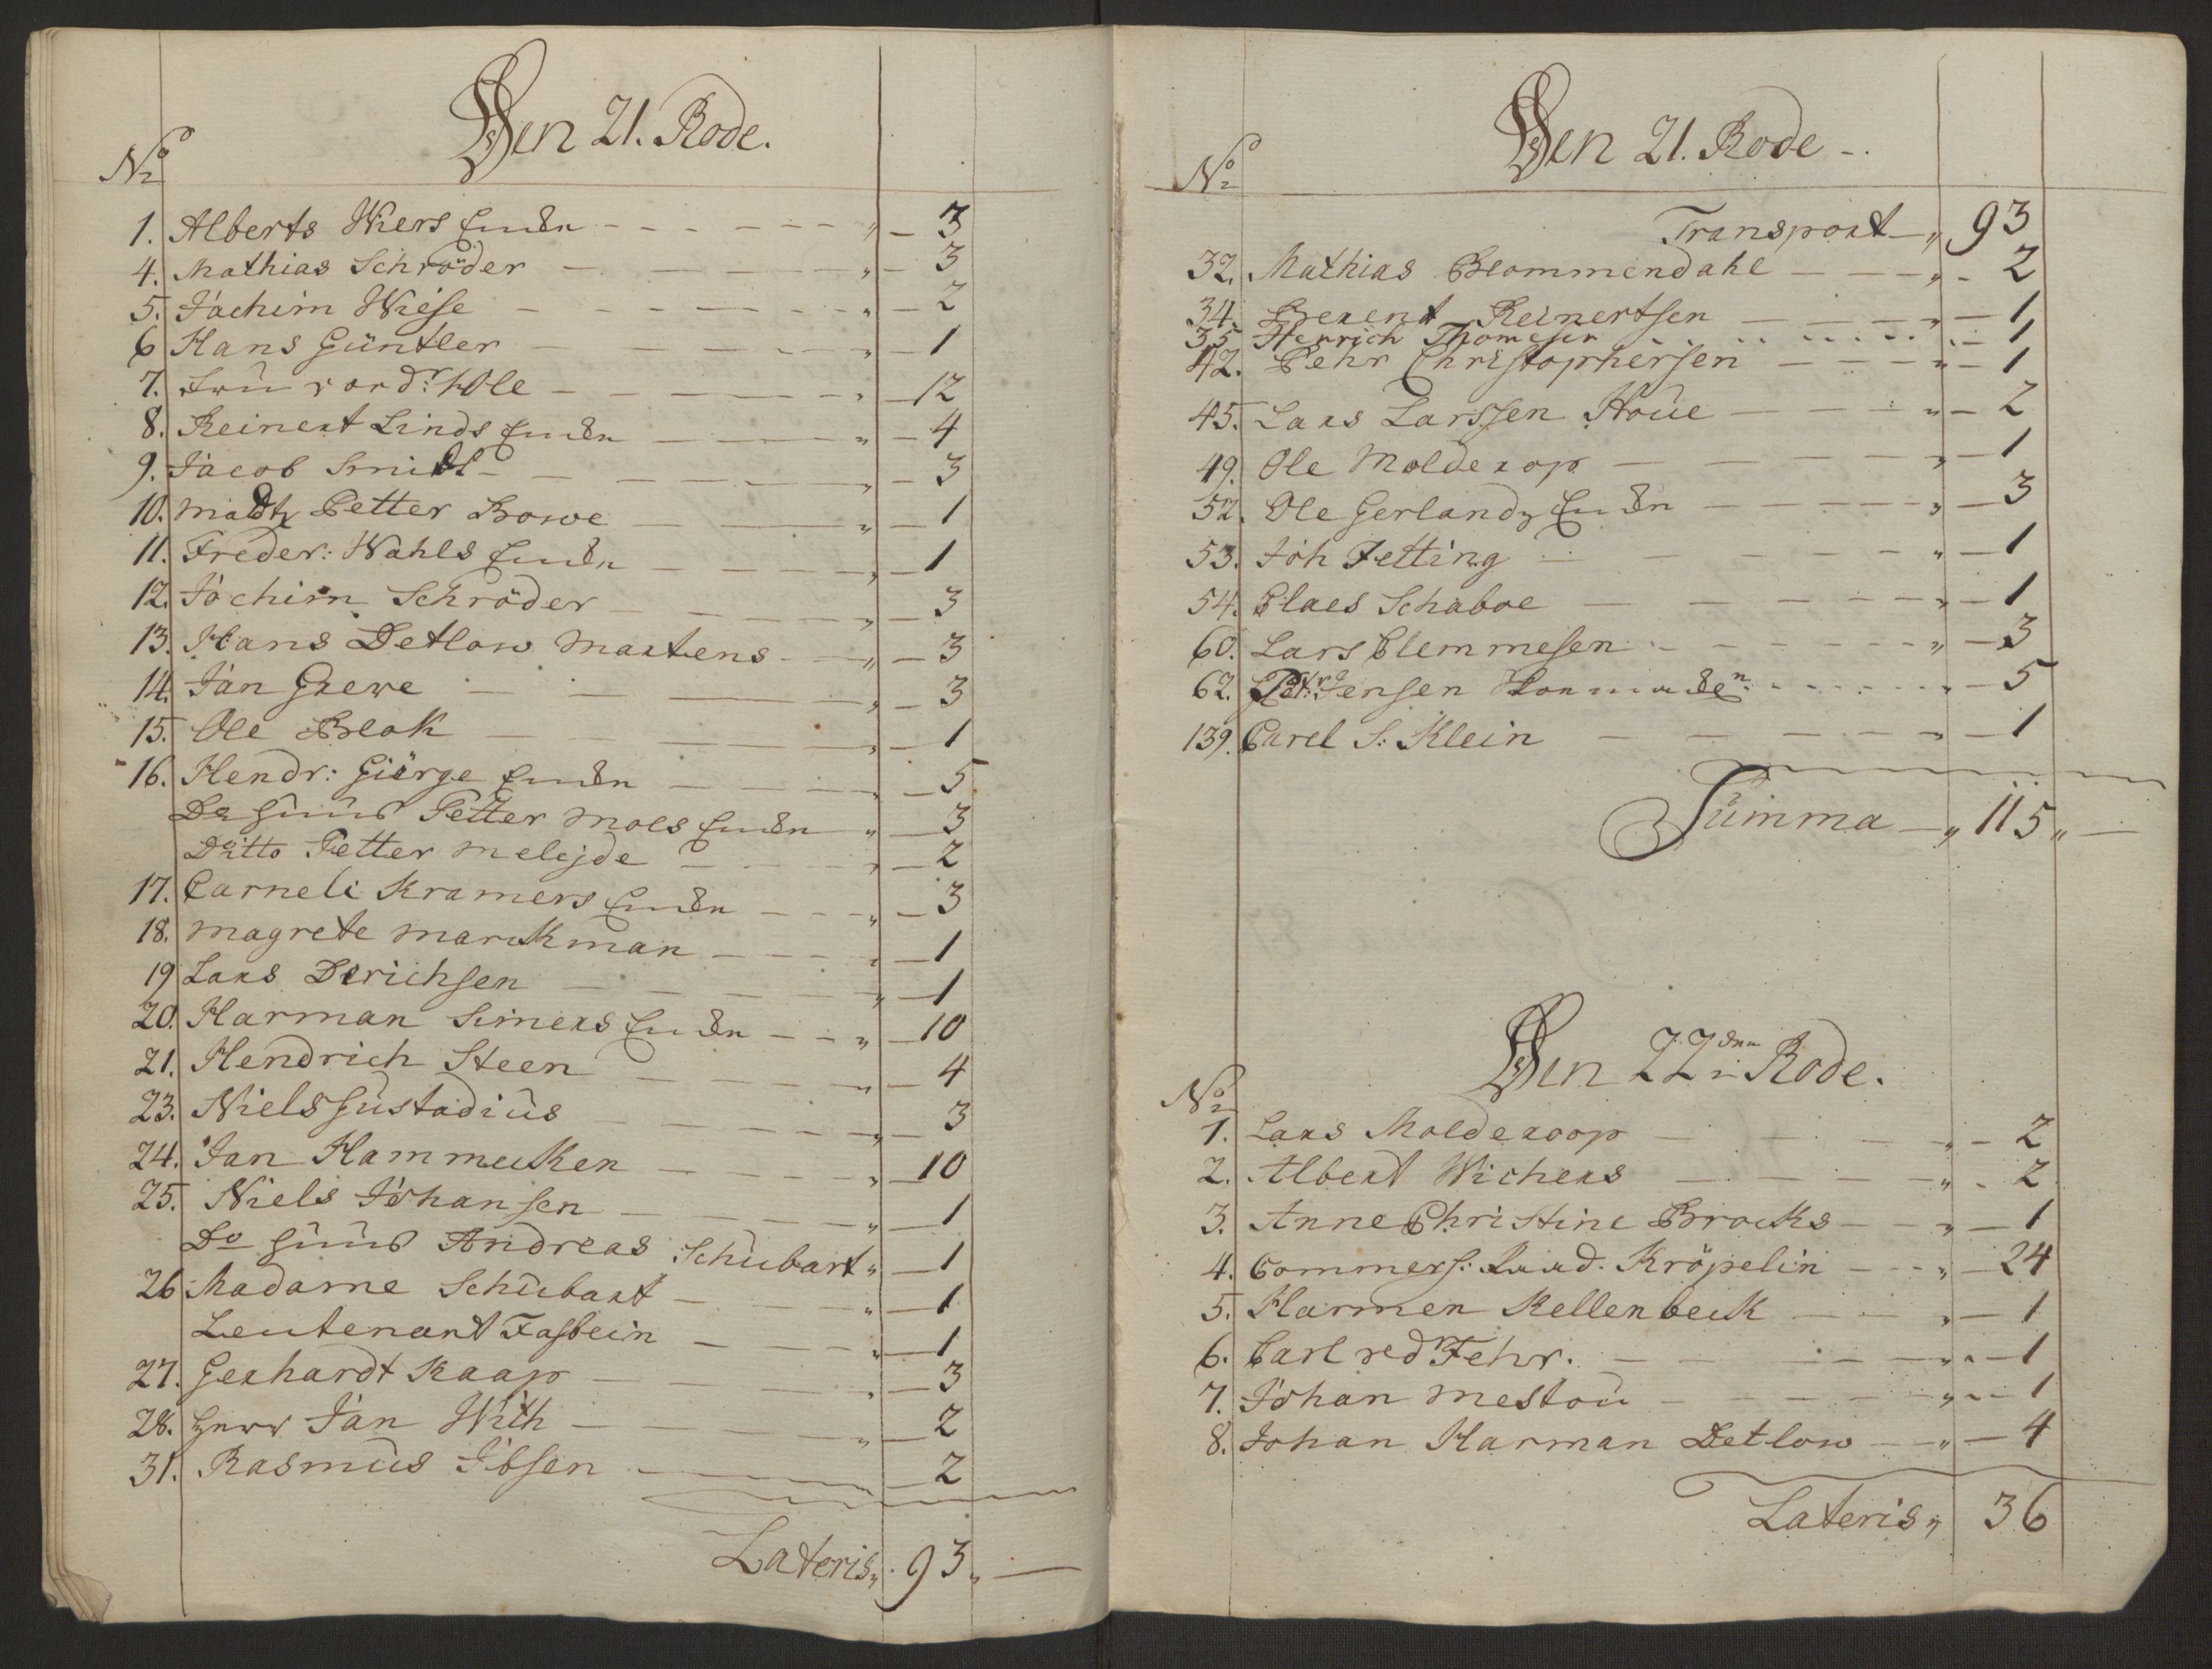 Den 21. Rode.
No
1. Alberts Wiers Enckn 3
4. Mathias Schröder 3
5. Jachim Wiese 2
6 Hans Güntler 1
7. Frü von dr: Ole 12
8. Reinert Linds Enckn 4
9. Jacob Smidt 3
10. Madtz Petter Bowe 1
11. Freder: Wahls Enckn 1
12. Jochim Schröder 3
13. Hans Detlow Martens 3
14. Jan Grewe 3
15. Ole Blok 1
16. Hendr: Giörge Enckn 5
Do Huus Petter Moes Enckn 3
Ditto Petter Melejde 2
17. Carneli Kramers Enckn 3
18. Magrete Marckman 1
19 Lars Dirichsen 1
20. Harman Simers Enckn 10
21. Hendrich Steen 4
23. Niels Gustadius 3
24. Jan Hammecken 10
25. Niels Johansen 1
Do Huus Andreas Schubart 1
26 Madame Schubart 1
Leutenant Fasbein 1
27. Gerhardt Kaap 3
28. Herr Jan With 2
31. Rasmus Ibsen 2
Lateris 93
Den 21. Rode
No
Transport 93
32. Mathias Blommendahl 2
34. Berent Reinertsen 1
35 Henrich Thomesen 1
42. Pehr Christophersen 1
45. Lars Larssen Houe 2
49. Ole Molderop 1
52. Ole Gerlandz Enckn 3
53. Joh Fetting 1
54. Claes Schaboe 1
60. Lars Clemmesen 3
62. Jensen 5
139. Carel S: Klein 1
Summa 115
Den 22den Rode.
No
1. Lars Molderoop 2
2. Albert Wichers 2
3. Anne Christine Brocks 1
4. Commers: Raad. Kröpelin 24
5. Harmen Kellenbeck 1
6. Carl Fehr. 1
7. Johan Mestou 1
8. Johan Harman Detlow 4
Lateris 36